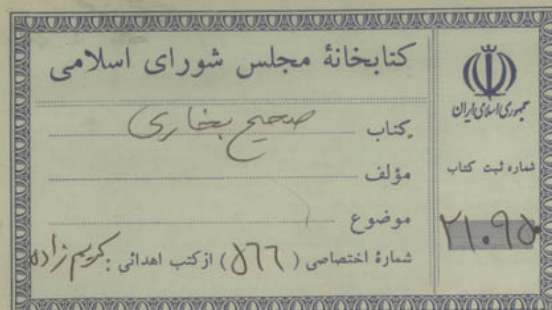 کتابخانهٔ مجلس شورای اسلامی
کتاب صحیح بخاری
مؤلف
موضوع
شمارهٔ اختصاصی ( ۵۶۶ ) از کتب اهدائی : کریم زاده
جمهوری اسلامی ایران
شماره ثبت کتاب
۲۱۰۹۵